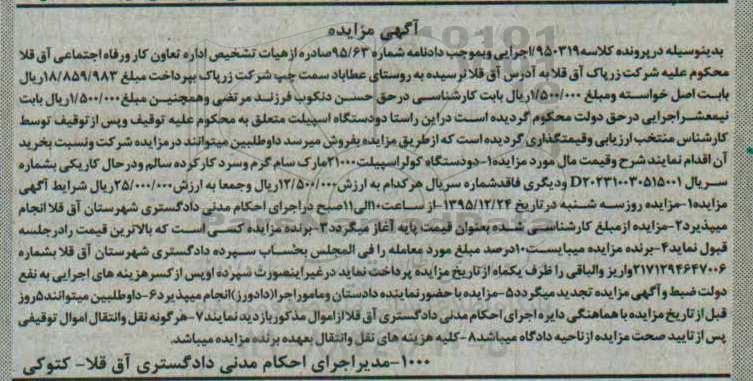 آگهی مزایده
بدینوسیله در پرونده کلاسه ۹۵۰۳۱۹/اجرایی وبموجب دادنامه شماره ۹۵/۶۳صادره از هیات تشخیص اداره تعاون کار ورفاه اجتماعی آق قلا
محکوم علیه شرکت زرپاک آق قلا به آدرس آق قلا نرسیده به روستای عطاباد سمت چپ شرکت زرپاک بپرداخت مبلغ ۱۸/۸۵۹/۹۸۳ریال
بابت اصل خواسته ومبلغ ۱/۵۰۰/۰۰۰ریال بابت کارشناسی در حق حسن دنکوب فرزند مرتضی وهمچنین مبلغ۱/۵۰۰/۰۰۰ریال بابت
نیمعشراجرایی درحق دولت محکوم گردیده است دراین راستا دودستگاه اسپیلت متعلق به محکوم علیه توقیف وپس از توقیف توسط
کارشناس منتخب ارزیابی وقیمتگذاری گردیده است که از طریق مزایده بفروش میرسد داوطلبین میتوانند در مزایده شرکت ونسبت بخرید
آن اقدام نمایند شرح وقیمت مال مورد مزایده۱-دودستگاه کولراسپیلت۲۱۰۰۰مارک سام گرم وسرد کارکرده سالم ودرحال کاریکی بشماره
سریال D۲۰۲۳۱۰۰۳۰۵۱۵۰۰۱ ودیگری فاقدشماره سریال هرکدام به ارزش۱۲/۵۰۰/۰۰۰ریال وجمعا به ارزش۲۵/۰۰۰/۰۰۰ریال شرایط آگهی
مزایده۱-مزایده روزسه شنبه درتاریخ ۱۳۹۵/۱۲/۲۴-از ساعت۱۰الی۱۱صبح دراجرای احکام مدنی دادگستری شهرستان آق قلاانجام
میپذیرد۲-مزایده ازمبلغ کارشناسی شده بعنوان قیمت پایه آغاز میگردد۳-برنده مزایده کسی است که بالاترین قیمت رادرجلسه
قبول نماید۴-برنده مزایده میبایست۱۰درصد مبلغ مورد معامله را فی المجلس بحساب سپرده دادگستری شهرستان آق قلا بشماره
۲۱۷۱۲۹۴۶۴۷۰۰۶واریز والباقی را ظرف یکماه از تاریخ مزایده پرداخت نماید درغیراینصورت سپرده اوپس ازکسرهزینه های اجرایی به نفع
دولت ضبط وآگهی مزایده تجدید میگردد۵-مزایده باحضورنماینده دادستان وماموراجرا(دادورز)انجام میپذیرد۶-داوطلبین میتوانند۵روز
قبل از تاریخ مزایده با هماهنگی دایره اجرای احکام مدنی دادگستری آق قلاازاموال مذکوربازدید نمایند۷-هرگونه نقل وانتقال اموال توقیفی
پس از تایید صحت مزایده ازناحیه دادگاه میباشد۸-کلیه هزینه های نقل وانتقال بعهده برنده مزایده میباشد.
۱۰۰۰-مدیراجرای احکام مدنی دادگستری آق قلا- کتوکی